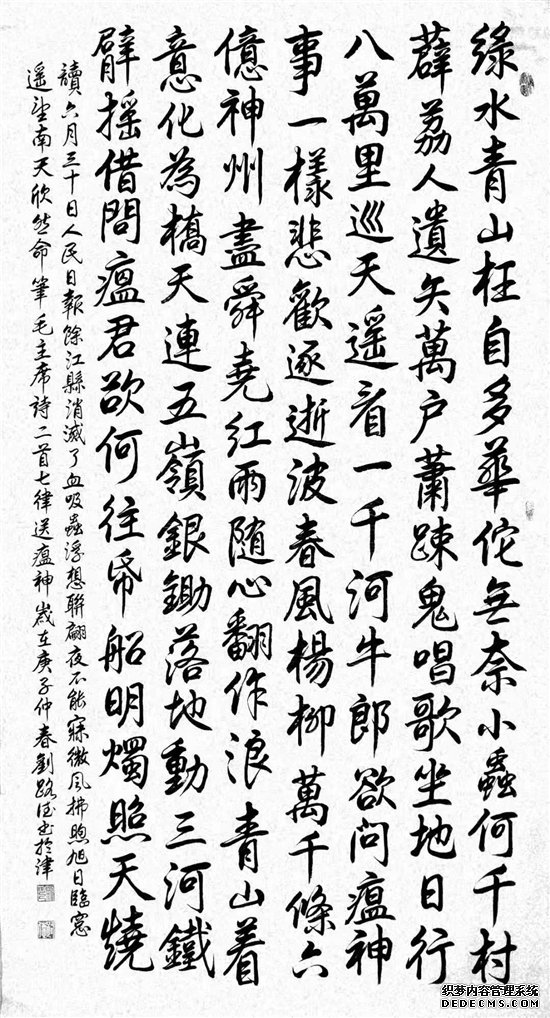 綠水青山枉自多華佗無奈小蟲何千村
薜荔人遺矢萬户蕭疎鬼唱歌坐地日行
八萬里巡天遥看一千河牛郎欲问瘟神
事一樣悲歡逐逝波春風楊柳萬千條六
億神州盡舜堯红雨随心翻作浪青山着
意化為橋天連五嶺銀鋤落地動三河鐵
臂摇借問瘟君欲何往帋船明燭照天燒
讀六月三十日人民日報餘江縣消滅了血吸蟲浮想聯翩夜不能寐微风拂煦旭日臨窗
遥望南天欣然命筆毛主席詩二首七律送瘟神歲在庚子仲春劉路书於津
织梦内容管理系统
DEDECMS.COM